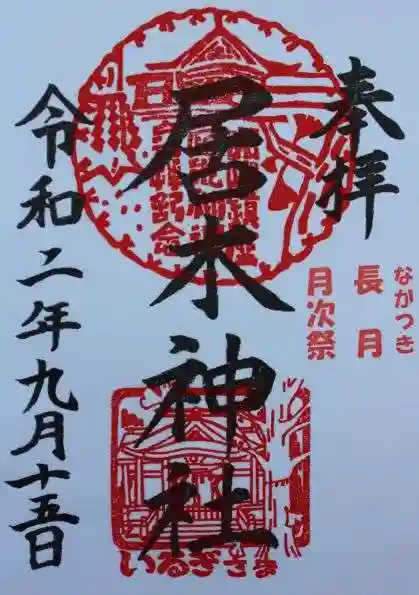 奉拝
なかつき
長月
月次祭
居木神社
いるぎさま
令和二年九月十五日